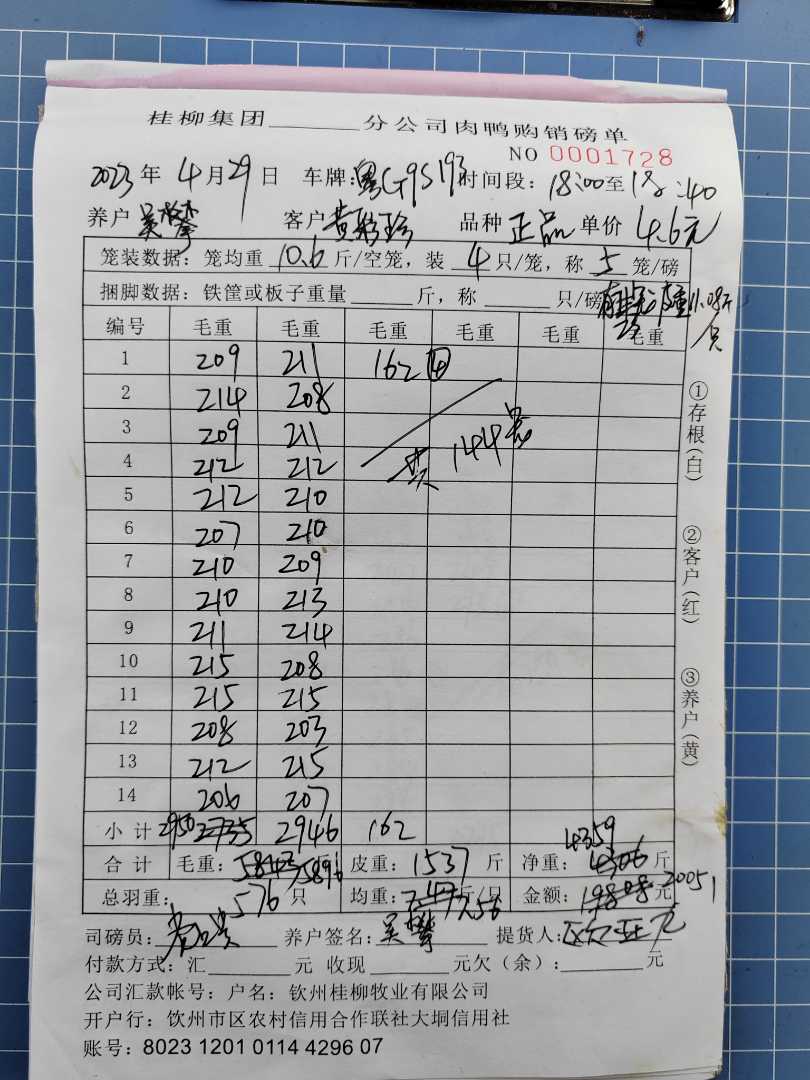 桂柳集团______分公司肉鸭购销磅单
NO 0001728
2023 年 4 月 29 日 车牌: 粤G9S193 时间段: 18:00 至 18:40
养户 吴攀 客户 黄 珍 品种 正品 单价 4.6元
笼装数据: 笼均重 10.6 斤/空笼, 装 4 只/笼, 称 5 笼/磅
捆脚数据: 铁筐或板子重量______斤, 称______只/磅
编号 毛重 毛重 毛重 毛重 毛重 毛重
1 209 211 162 ④
2 214 208
3 209 211
4 212 212 共 144笼
5 212 210
6 207 210
7 210 209
8 210 213
9 211 214
10 215 208
11 215 215
12 208 203
13 212 215
14 206 207
小计 2950 2735 2946 162
4359
合计 毛重: 5843 5896 皮重: 1537 斤 净重: 4306 斤
总羽重: 576 只 均重: 7.56 斤/只 金额: 元 20051
司磅员: 养户签名: 吴攀 提货人:
付款方式: 汇______元 收现______元欠(余): ______元
公司汇款帐号: 户名: 钦州桂柳牧业有限公司
开户行: 饮州市区农村信用合作联社大垌信用社
账号: 8023 1201 0114 4296 07
①存根(白)
②客户(红)
③养户(黄)